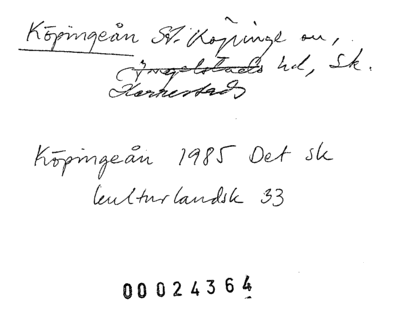 Köpingeån St. Köpinge sn,
Ingelstads hd, Sk.
Herrestads
Köpingeån 1985 Det sk
kulturlandsk 33
00024364